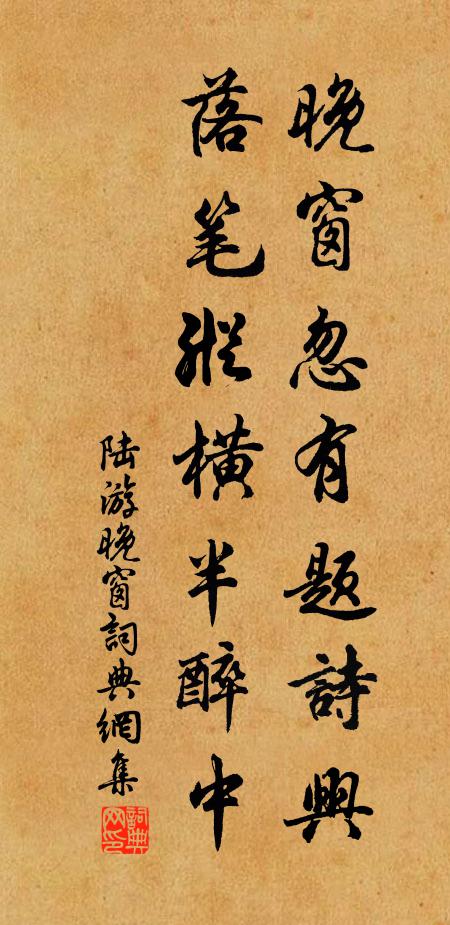 晚窗忽有题詩興
落笔縱橫半醉中
陆游晚窗詞典網集
詞典网印